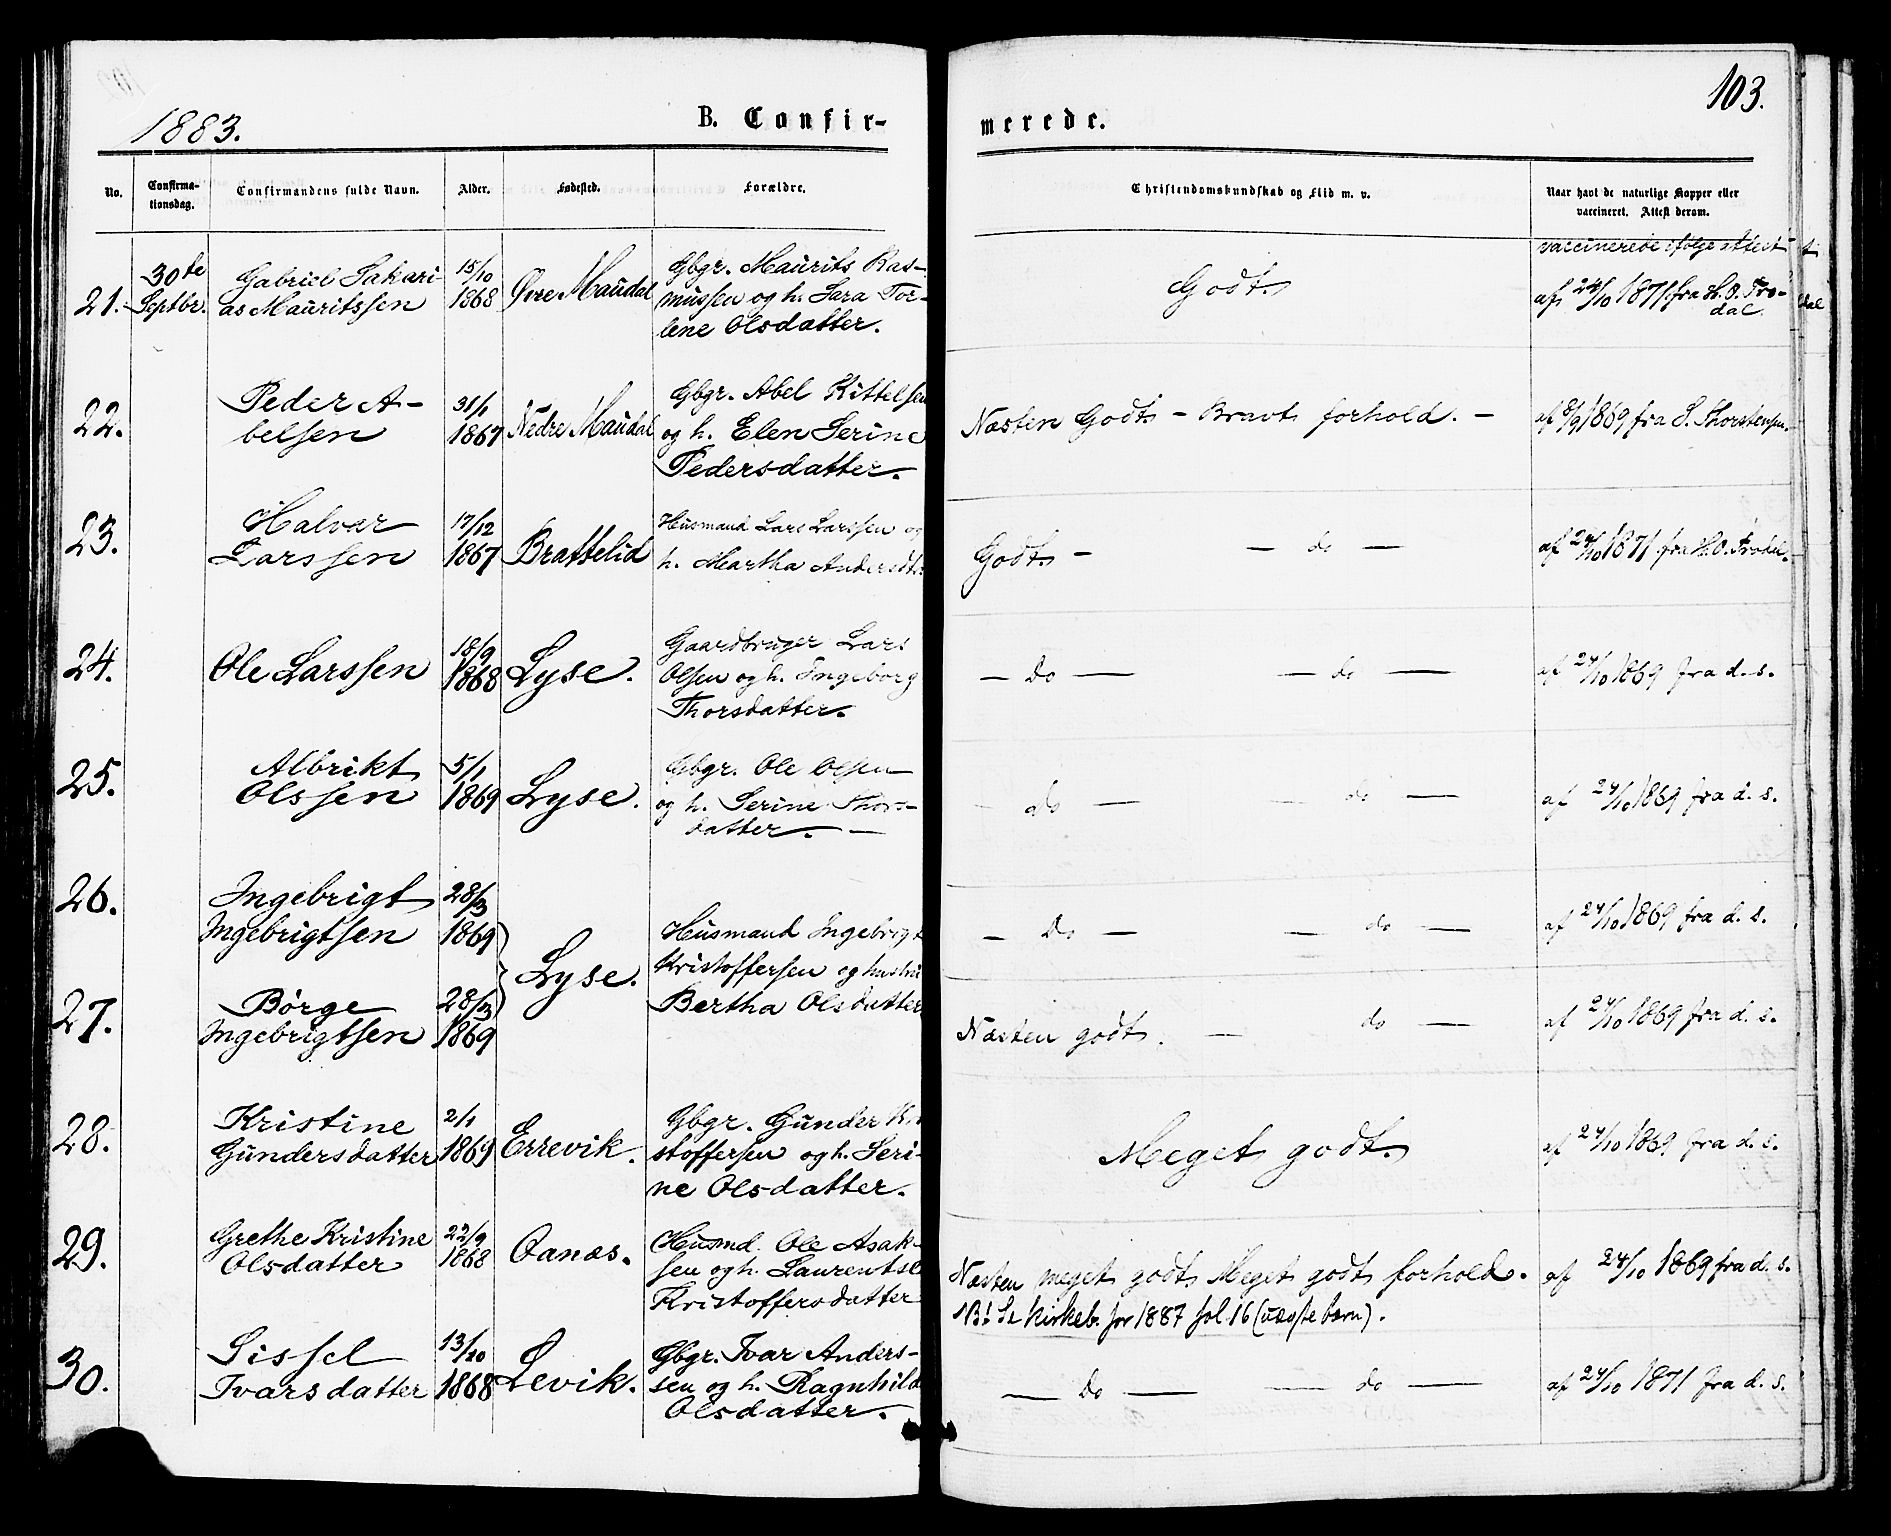 103.
1883.
B. Confir-
merede.
No.
Confirma-
tionsdag.
Confirmandens fulde Navn.
Alder.
Fødested.
Forældre.
Christendomskundskab og Flid m. v.
Naar havt de naturlige Kopper eller
vaccineret. Attest derom.
21.
30te
Septbr.
Gabriel Sakari-
as Mauritssen
15/10
1868
Øvre Maudal
Gbgr. Maurits Ras-
mussen og h. Sara Tor-
lene Olsdatter.
Godt.
vaccinerede ifølge attest
af 24/10 1871 fra H. O. Fro-
dal.
22.
Peder A-
belsen
31/1
1867
Nedre Maudal
Gbgr. Abel Kittelsen
og h. Elen Serine
Pedersdatter.
Næsten Godt - Bravt forhold. -
af 8/9 1869 fra S. Thorstensen.
23.
Halvar
Larssen
17/12
1867
Brattelid
Husmand Lars Larssen og
h. Martha Andersdt.
Godt. - — do —
af 24/10 1871 fra H. O. Frodal.
24.
Ole Larssen
18/9
1868
Lyse.
Gaardbruger Lars
Olsen og h. Ingeborg
Thorsdatter.
— do — — do —
af 24/10 1869 fra d. s.
25.
Albrikt
Olssen
5/1
1869
Lyse.
Gbgr. Ole Olsen
og h. Serine Thors-
datter. —
— do — — do —
af 24/10 1869 fra d. s.
26.
Ingebrigt
Ingebrigtsen
28/3
1869
Lyse.
Husmand Ingebrigt
Kristoffersen og hustru
Bertha Olsdatter
— Do — — do —
af 24/10 1869 fra d. s.
27.
Børge
Ingebrigtsen
28/3
1869
Næsten godt. — do —
af 24/10 1869 fra d. s.
28.
Kristine
Gundersdatter
2/1
1869
Errevik.
Gbgr. Gunder Kri
stoffersen og h. Seri-
ne Olsdatter.
Meget godt.
af 24/10 1869 fra d. s.
29.
Grethe Kristine
Olsdatter
22/9
1868
Oanæs.
Husmd. Ole Asak-
sen og h. Laurentse
Kristoffersdatter
Næsten meget godt, Meget godt forhold.
NB! Se kirkeb. for 1887 fol. 16 (uægte børn).
af 24/10 1869 fra d. s.
30.
Sissel
Ivarsdatter
13/10
1868
Levik.
Gbgr. Ivar Anders-
sen og h. Ragnhild
Olsdatter.
— Do — — do —
af 24/10 1871 fra d. s.